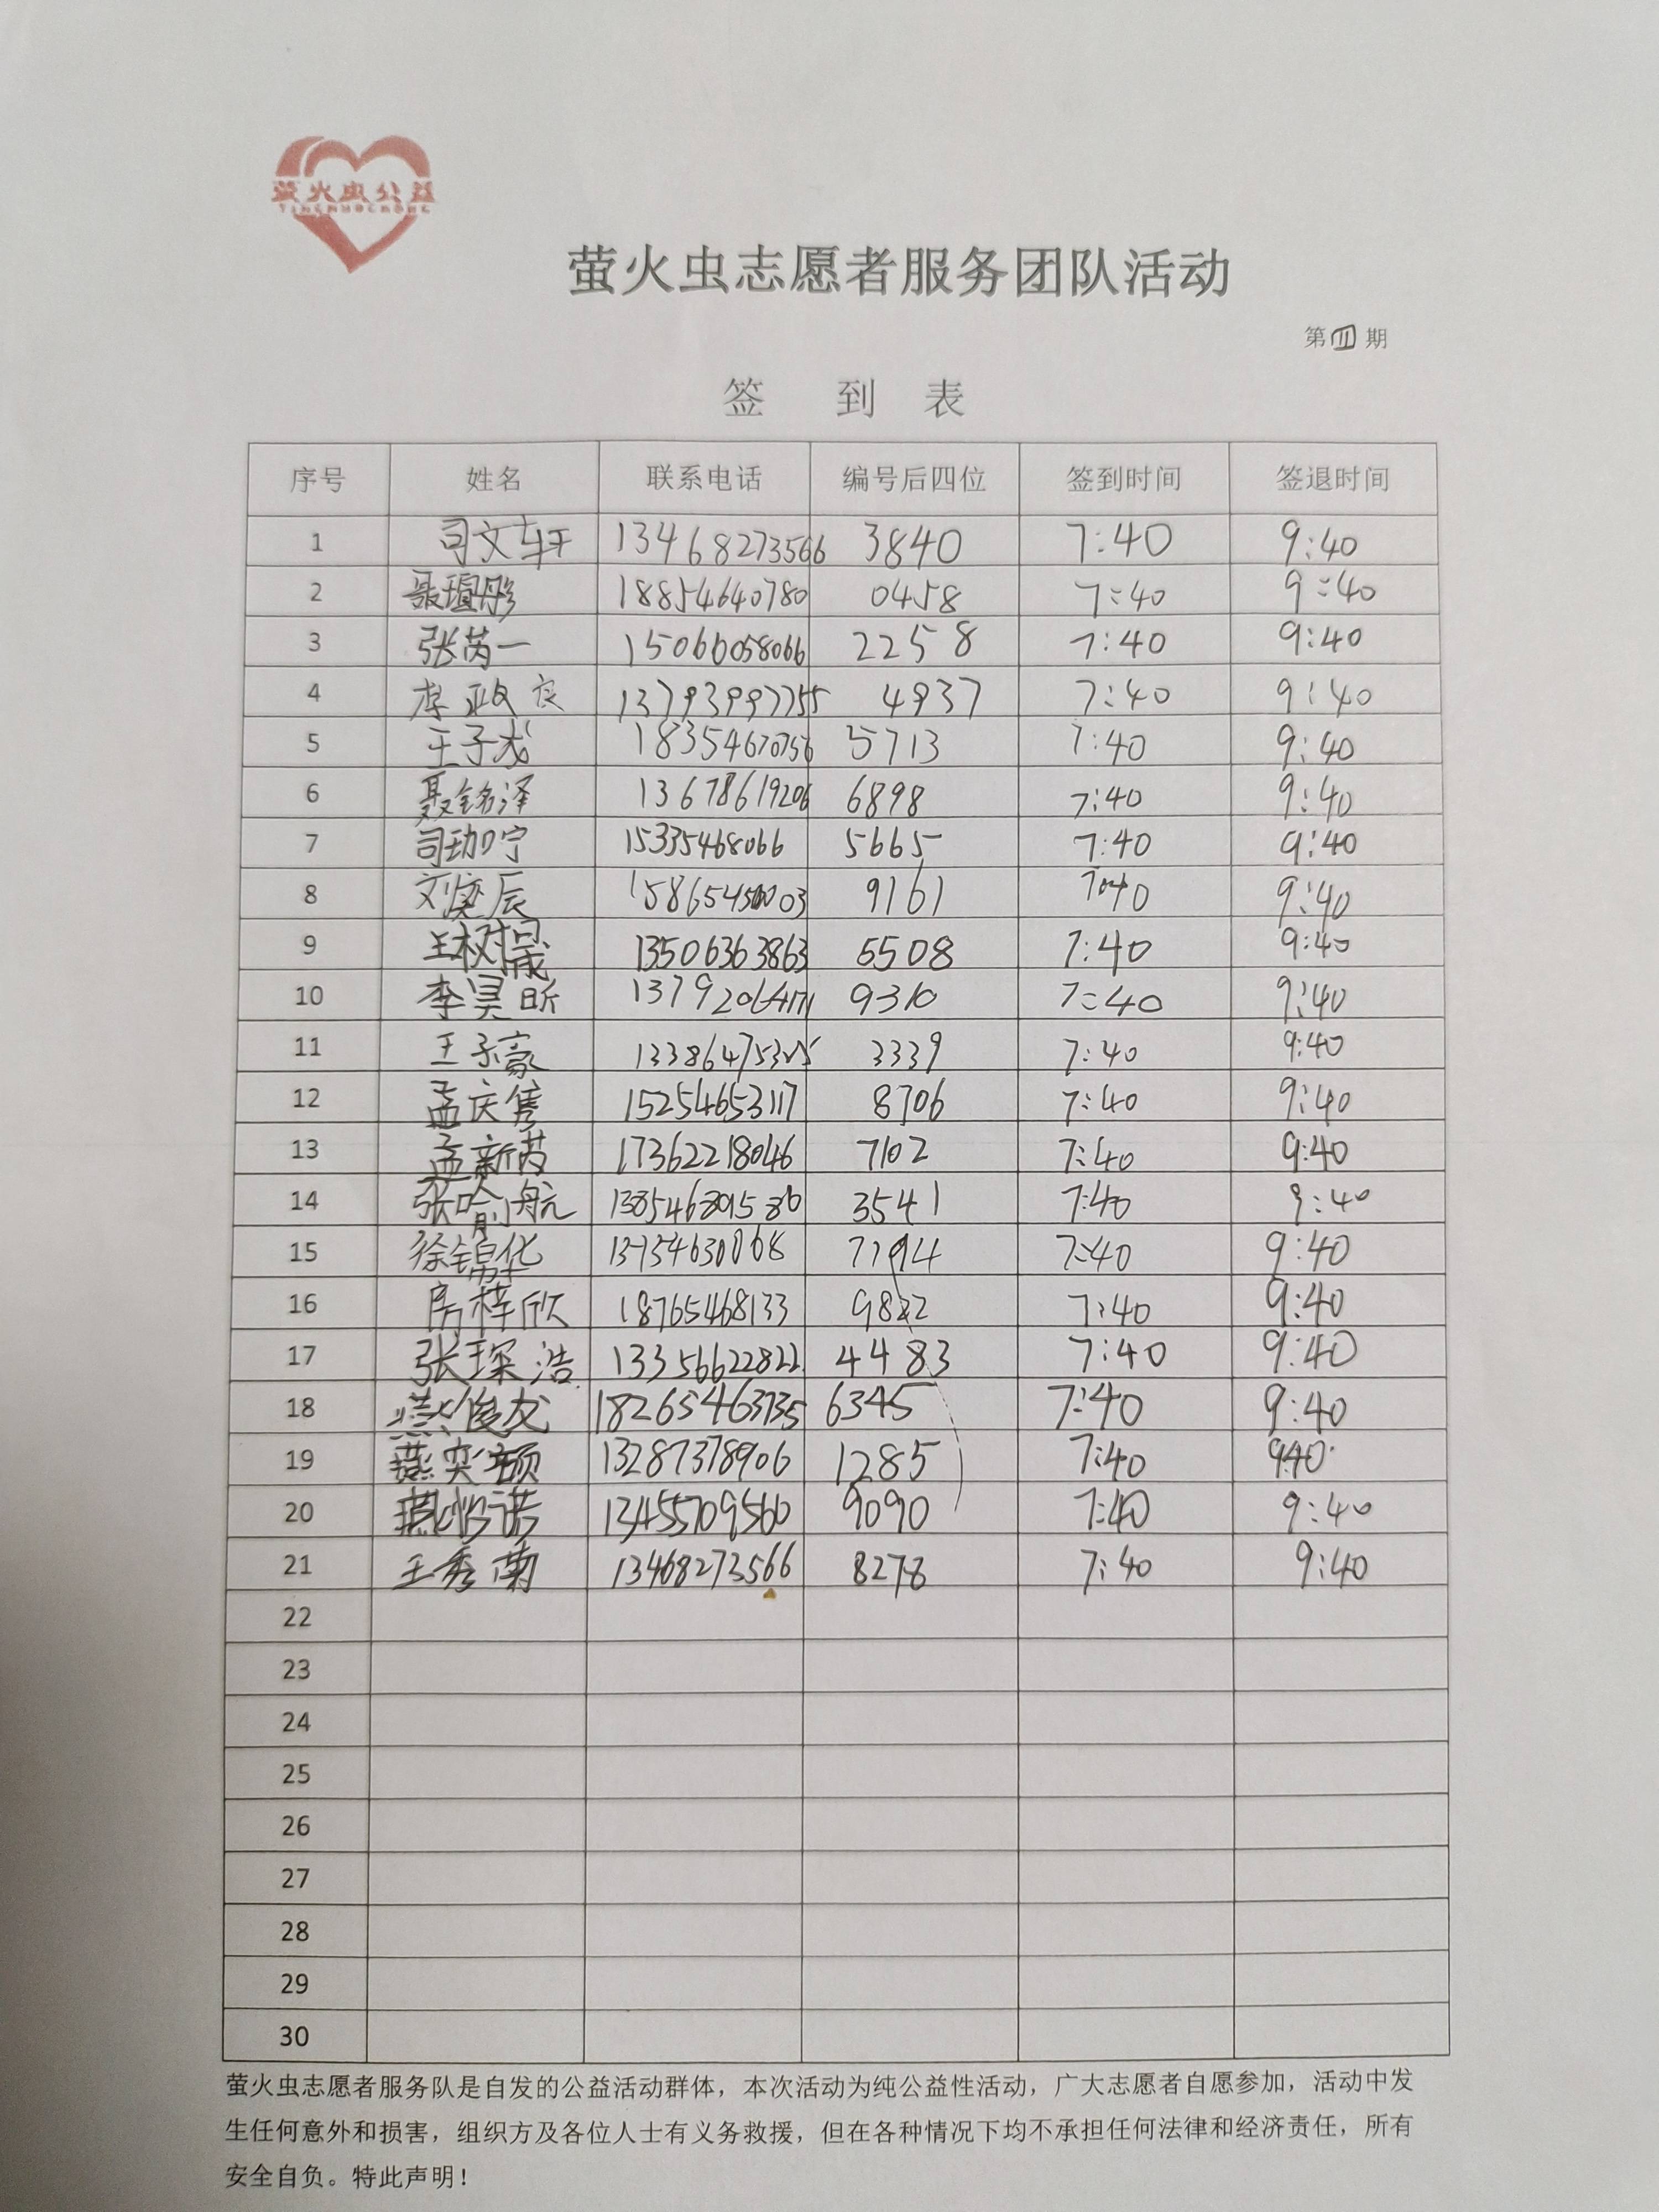 萤火虫公益
萤火虫志愿者服务团队活动
第四期
签 到 表
序号 姓名 联系电话 编号后四位 签到时间 签退时间
1 司文轩 13468273566 3840 7:40 9:40
2 聂瑄彤 18854640780 0458 7:40 9:40
3 张芮一 15066058066 2258 7:40 9:40
4 李政良 13793997755 4937 7:40 9:40
5 王子成 18354670756 5713 7:40 9:40
6 聂铭泽 13678619206 6898 7:40 9:40
7 司玏宁 15335468066 5665 7:40 9:40
8 刘奕辰 9161 7:40 9:40
9 王树晟 13506363863 5508 7:40 9:40
10 李昊昕 9310 7:40 9:40
11 王子豪 13386475325 3339 7:40 9:40
12 孟庆隽 15254653117 8706 7:40 9:40
13 孟新茜 17362218046 7102 7:40 9:40
14 张喻航 3541 7:40 9:40
15 徐锦华 7194 7:40 9:40
16 房梓欣 18765468133 9822 7:40 9:40
17 张琛浩 13356622822 4483 7:40 9:40
18 燕俊龙 18265463735 6345 7:40 9:40
19 燕奕颀 13287378906 1285 7:40 9:40
20 燕怡诺 13455709560 9090 7:40 9:40
21 王秀菊 13468273566 8278 7:40 9:40
22
23
24
25
26
27
28
29
30
萤火虫志愿者服务队是自发的公益活动群体，本次活动为纯公益性活动，广大志愿者自愿参加，活动中发
生任何意外和损害，组织方及各位人士有义务救援，但在各种情况下均不承担任何法律和经济责任，所有
安全自负。特此声明！